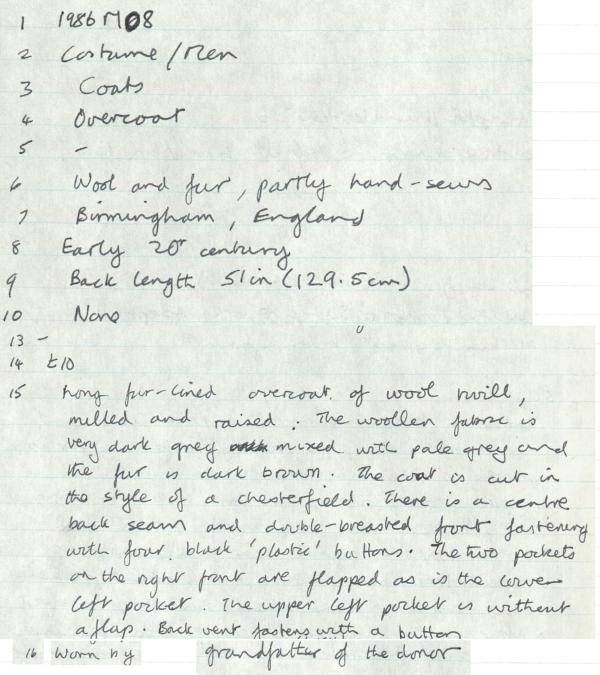 1 1986 M08
2 Costume/Men
3 Coats
4 Overcoat
5 -
6 Wool and fur, partly hand-sewn
7 Birmingham, England
8 Early 20th century
9 Back length 51in (129.5cm)
10 None
13 -
14 £10
15 Long fur-lined overcoat of wool twill,
milled and raised. The woollen fabric is
very dark grey mixed with pale grey and
the fur is dark brown. The coat is cut in
the style of a chesterfield. There is a centre
back seam and double-breasted front fastening
with four black 'plastic' buttons. The two pockets
on the right front are flapped as is the lower
left pocket. The upper left pocket is without
a flap. Back vent fastens with a button
16 Worn by grandfather of the donor